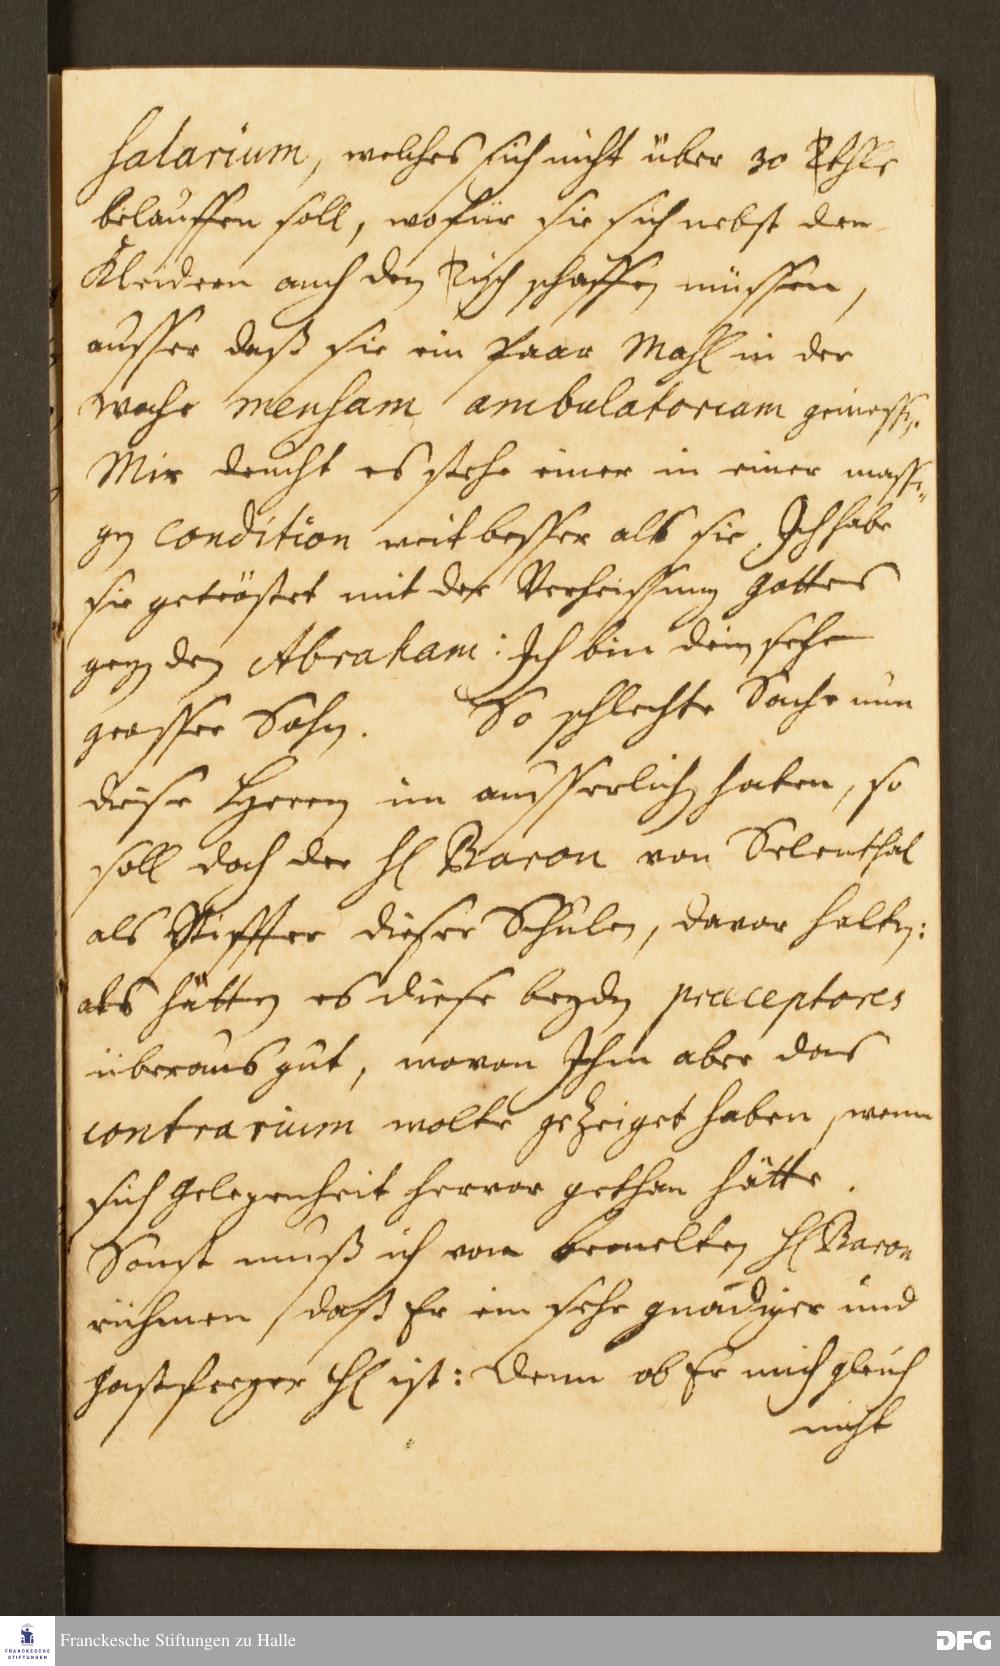 Salarium, welches sich nicht über 30 Rthlr
belauffen soll, wofür sie sich nebst den
Kleidern auch den Tisch schaffen müssen,
ausser daß sie ein paar Mahl in der
woche mensam ambulatoriam geniessen.
Mir deucht es stehe einer in einer massi-
gen condition weit besser als sie. Ich habe
sie getröstet mit der Verheissung Gottes
gegen den Abraham: Ich bin dein sehr
grosser Lohn. So schlechte Sache nun
diese Herren im ausserlichen haben, so
soll doch der H Baron von Selenthal
als Stiffter dieser Schulen, davor halten:
als hätten es diese beyden praeceptores
überaus gut, wovon Ihm aber das
contrarium wolte gezeiget haben, wenn
sich gelegenheit hervor gethan hätte.
Sonst muß ich von bemelten H Baron
rühmen, daß Er ein sehr gnädiger und
gastfreyer H ist: Denn ob Er mich gleich
nicht
FRANCKESCHE STIFTUNGEN
Franckesche Stiftungen zu Halle
DFG